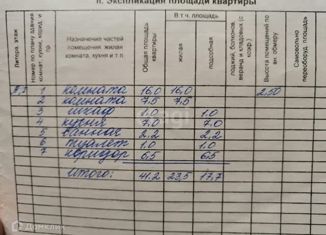 II. Экспликация площади квартиры
Литера, этаж
Номер по плану здания
Назначение частей помещения: жилая комната, кухня и т.п.
Общая площадь квартиры
В т.ч. площадь
жилая
подсобная
лоджий, балконов, веранд и кладовых (с коэф.)
Высота помещений по вн. обмеру
Самовольно переоборуд. площадь
1 комната 16,0 16,0 2,50
2 комната 7,5 7,5
3 шкаф 1,0 1,0
4 кухня 7,0 7,0
5 ванная 2,2 2,2
6 туалет 1,0 1,0
7 коридор 6,5 6,5
Итого: 41,2 23,5 17,7
Домклик